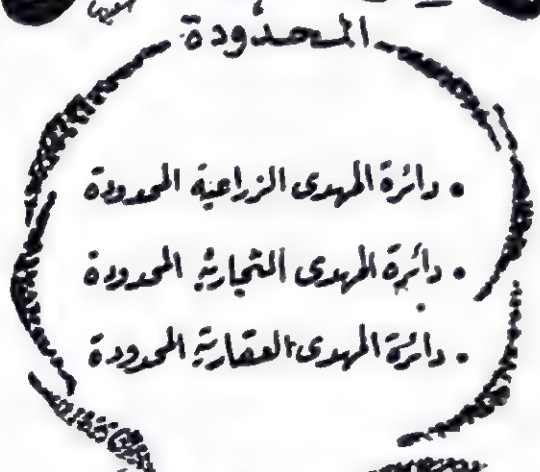 المحدودة
• دائرة المهدى الزراعية المحدودة
• دائرة المهدى التجارية المحدودة
• دائرة المهدى العقارية المحدودة